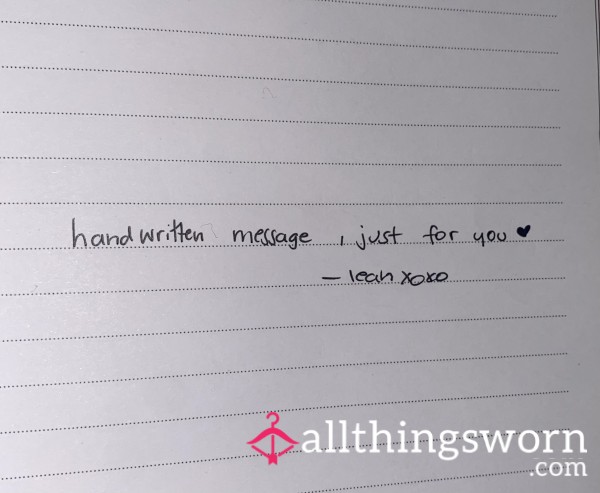 handwritten message, just for you ♥
– leah xoxo
allthingsworn
.com